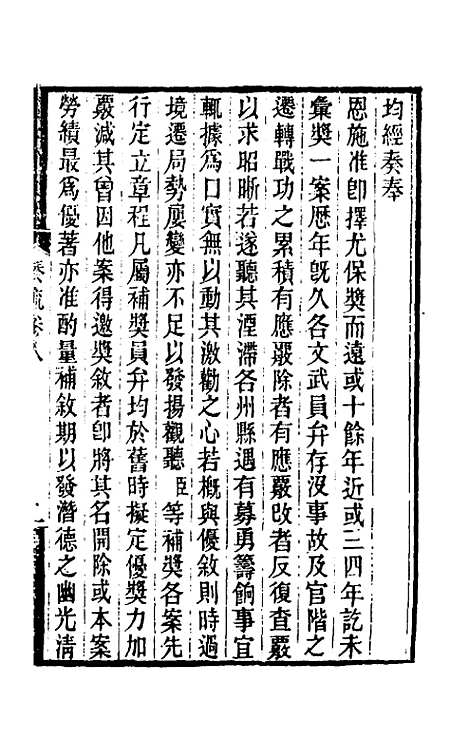 均經奏奉
恩施准卽擇尤保獎而遠或十餘年近或三四年訖未
彙獎一案歷年旣久各文武員弁存沒事故及官階之
遷轉戰功之累積有應覈除者有應覈改者反復查覈
以求昭晰若遂聽其湮滯各州縣遇有募勇籌餉事宜
輒據爲口實無以動其激勸之心若概與優敘則時過
境遷局勢屢變亦不足以發揚觀聽臣等補獎各案先
行定立章程凡屬補獎員弁均於舊時擬定優獎力加
覈減其曾因他案得邀獎敘者卽將其名開除或本案
勞績最爲優著亦准酌量補敘期以發潛德之幽光淸
奏疏卷八